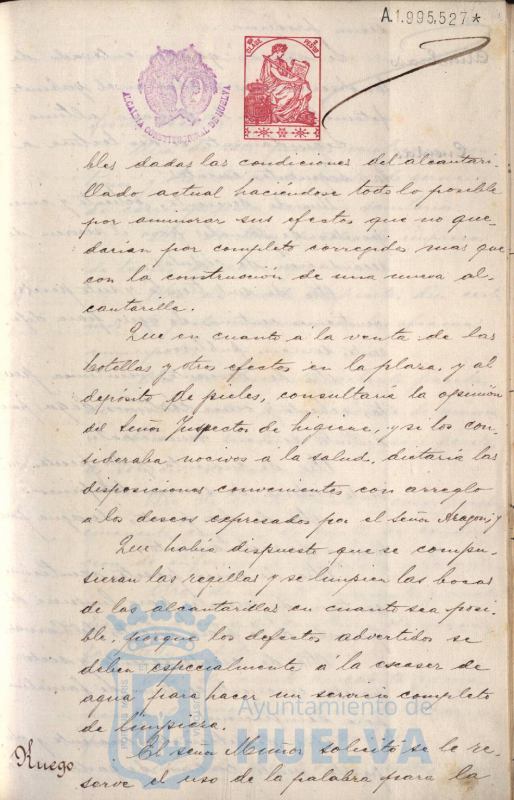 A.1.995,527*
10ª CLASE
ALCALDIA CONSTITUCIONAL DE HUELVA
bles dadas las condiciones del alcantari-
llado actual haciéndose todo lo posible
por aminorar sus efectos que no que-
darian por completo corregidos mas que
con la construcción de una nueva al-
cantarilla.
Que en cuanto á la venta de las
botellas y otros efectos en la plaza, y al
deposito de pieles, consultaria la opinión
del Señor Inspector de higiene, y si los con-
sideraba nocivos a la salud, dictaria las
disposiciones convenientes con arreglo
a los deseos expresados por el señor Aragon; y
Que habia dispuesto que se compu-
sieran las regillas y se limpien las bocas
de las alcantarillas en cuanto sea posi-
ble, porque los defectos advertidos se
deben especialmente á la escasez de
agua para hacer un servicio completo
de limpieza.
Ruego
El señor Muñoz solicitó se le re-
serve el uso de la palabra para la
Ayuntamiento de
HUELVA